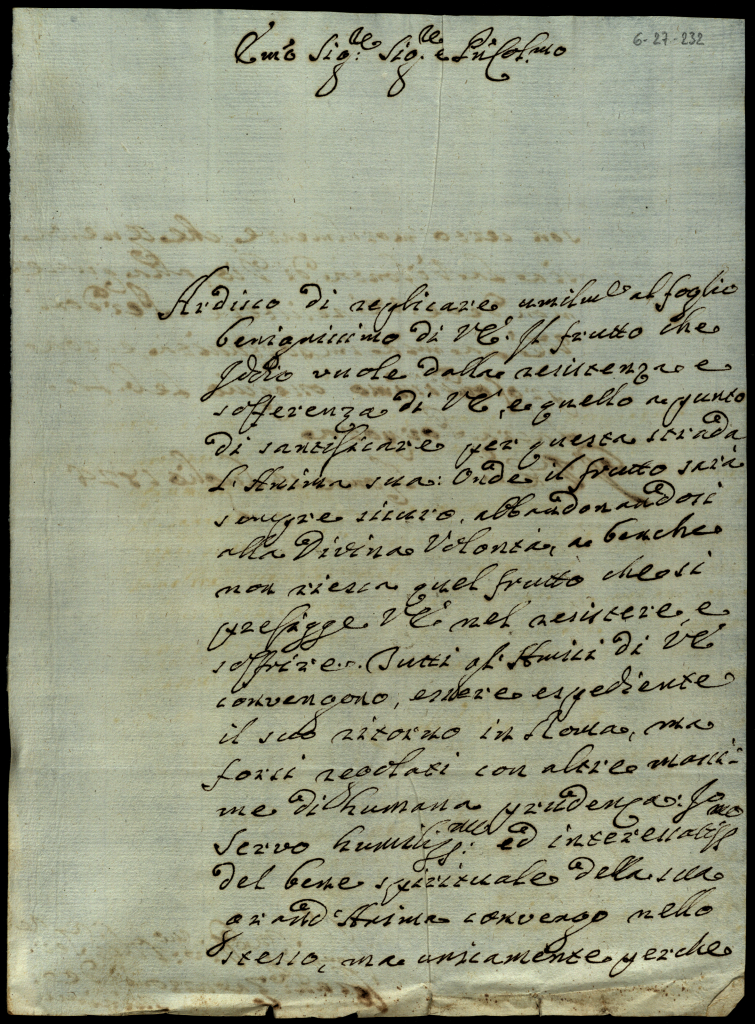 6-27-232
Emo Sig:re Sig:re e Pne Col:mo
Ardisco di replicare umilme al foglio
benignissimo di VE: Il frutto che
Iddio vuole dalla resistenza e
sofferenza di VE, e quello a punto
di santificare per questa strada
l'Anima sua: Onde il frutto sarà
sempre sicuro, abbandonandosi
alla Divina Volontà, a benche
non riesca quel frutto che si
prefigge VE nel resistere, e
soffrire. Tutti gl'Amici di VE
convengono, essere espediente
il suo ritorno in Roma, ma
forsi regolati con altre massi-
me di humana prudenza: Io
servo humiliss:mo ed interessatiss:mo
del bene spirituale della sua
grand'Anima convengo nello
stesso, ma unicamente perche